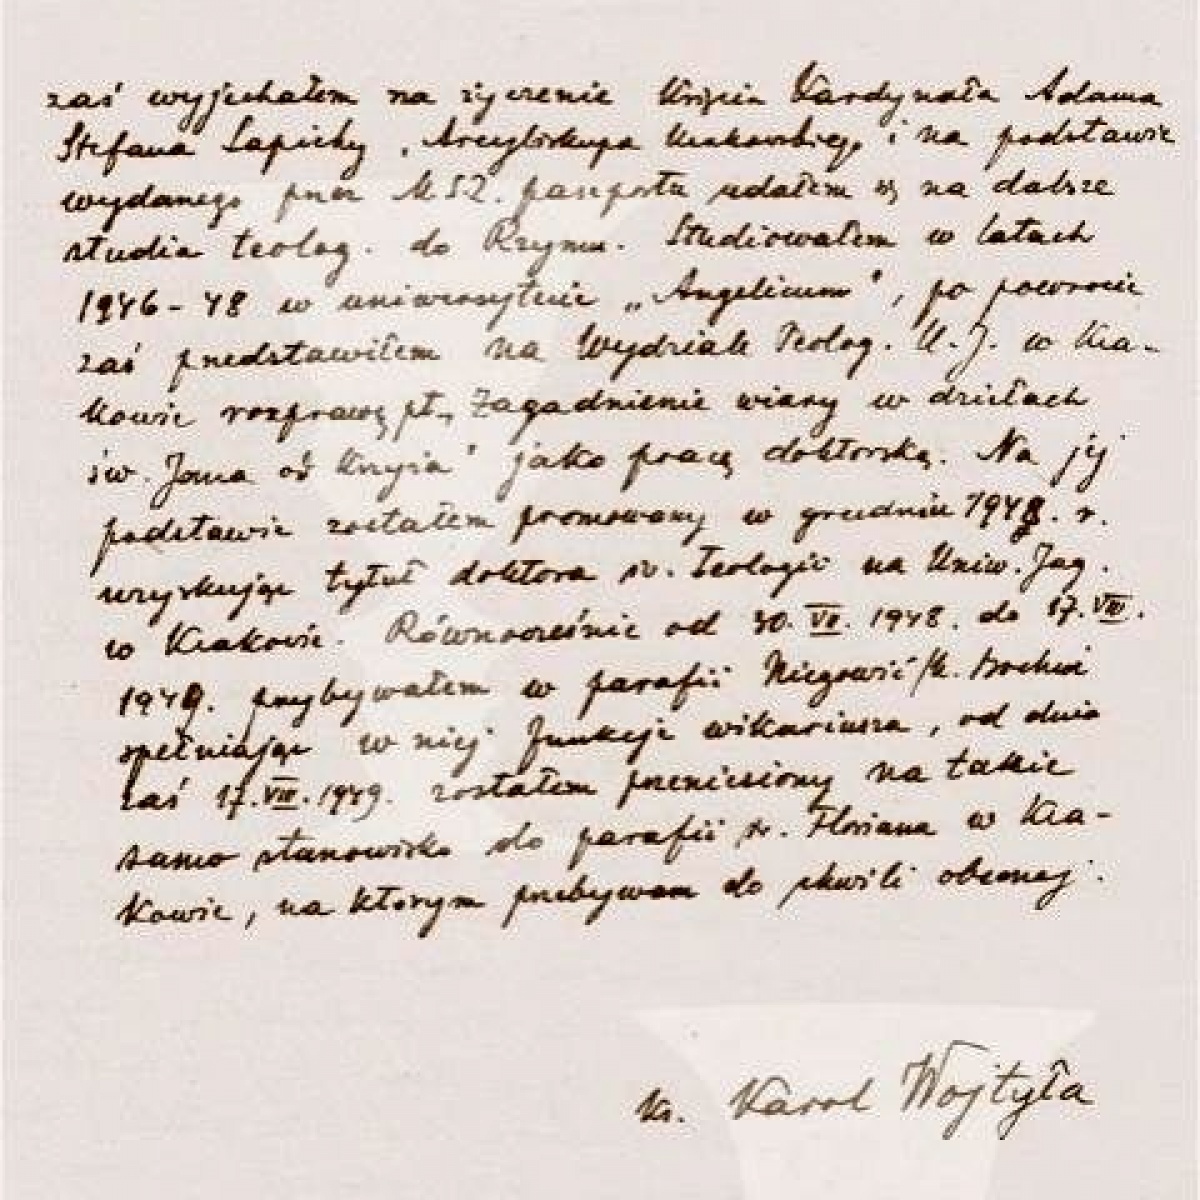 zaś wyjechałem na życzenie Księcia Kardynała Adama
Stefana Sapiehy, Arcybiskupa Krakowskiego i na podstawie
wydanego przez M.S.Z. paszportu udałem się na dalsze
studia teolog. do Rzymu. Studiowałem w latach
1946-48 w uniwersytecie „Angelicum", po powrocie
zaś przedstawiłem na Wydziale Teolog. U.J. w Kra-
kowie rozprawę pt. „Zagadnienie wiary w dziełach
św. Jana od Krzyża" jako pracę doktorską. Na jej
podstawie zostałem promowany w grudniu 1948. r.
uzyskując tytuł doktora św. Teologii na Uniw. Jag.
w Krakowie. Równocześnie od 30. VII. 1948. do 17. VIII.
1949. przybywałem w parafii Niegowić /k. Bochni
spełniając w niej funkcje wikariusza, od dnia
zaś 17. VIII. 1949. zostałem przeniesiony na takie
samo stanowisko do parafii św. Floriana w Kra-
kowie, na którym przebywam do chwili obecnej.
ks. Karol Wojtyła